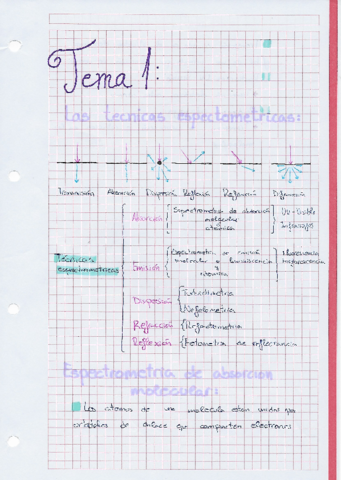 Tema 1:
Las tecnicas espectometricas:
Transmisión Absorción Dispersión Reflexión Refracción Difracción
Absorción Espectrometría de absorción UV-Visible
molecular Infrarrojos
atómica
Técnicas
espectrometricas
Emisión Espectrometria de emisión Fluorescencia
molecular o luminiscencia Fosforescencia
y
atomica
Dispersión Turbidimetría
Nefelometría
Refracción Refractometría
Reflexión Fotometría de reflectancia
Espectrometria de absorción
molecular:
Los atomos de una molecula están unidos por
orbitales de enlace que comparten electrones